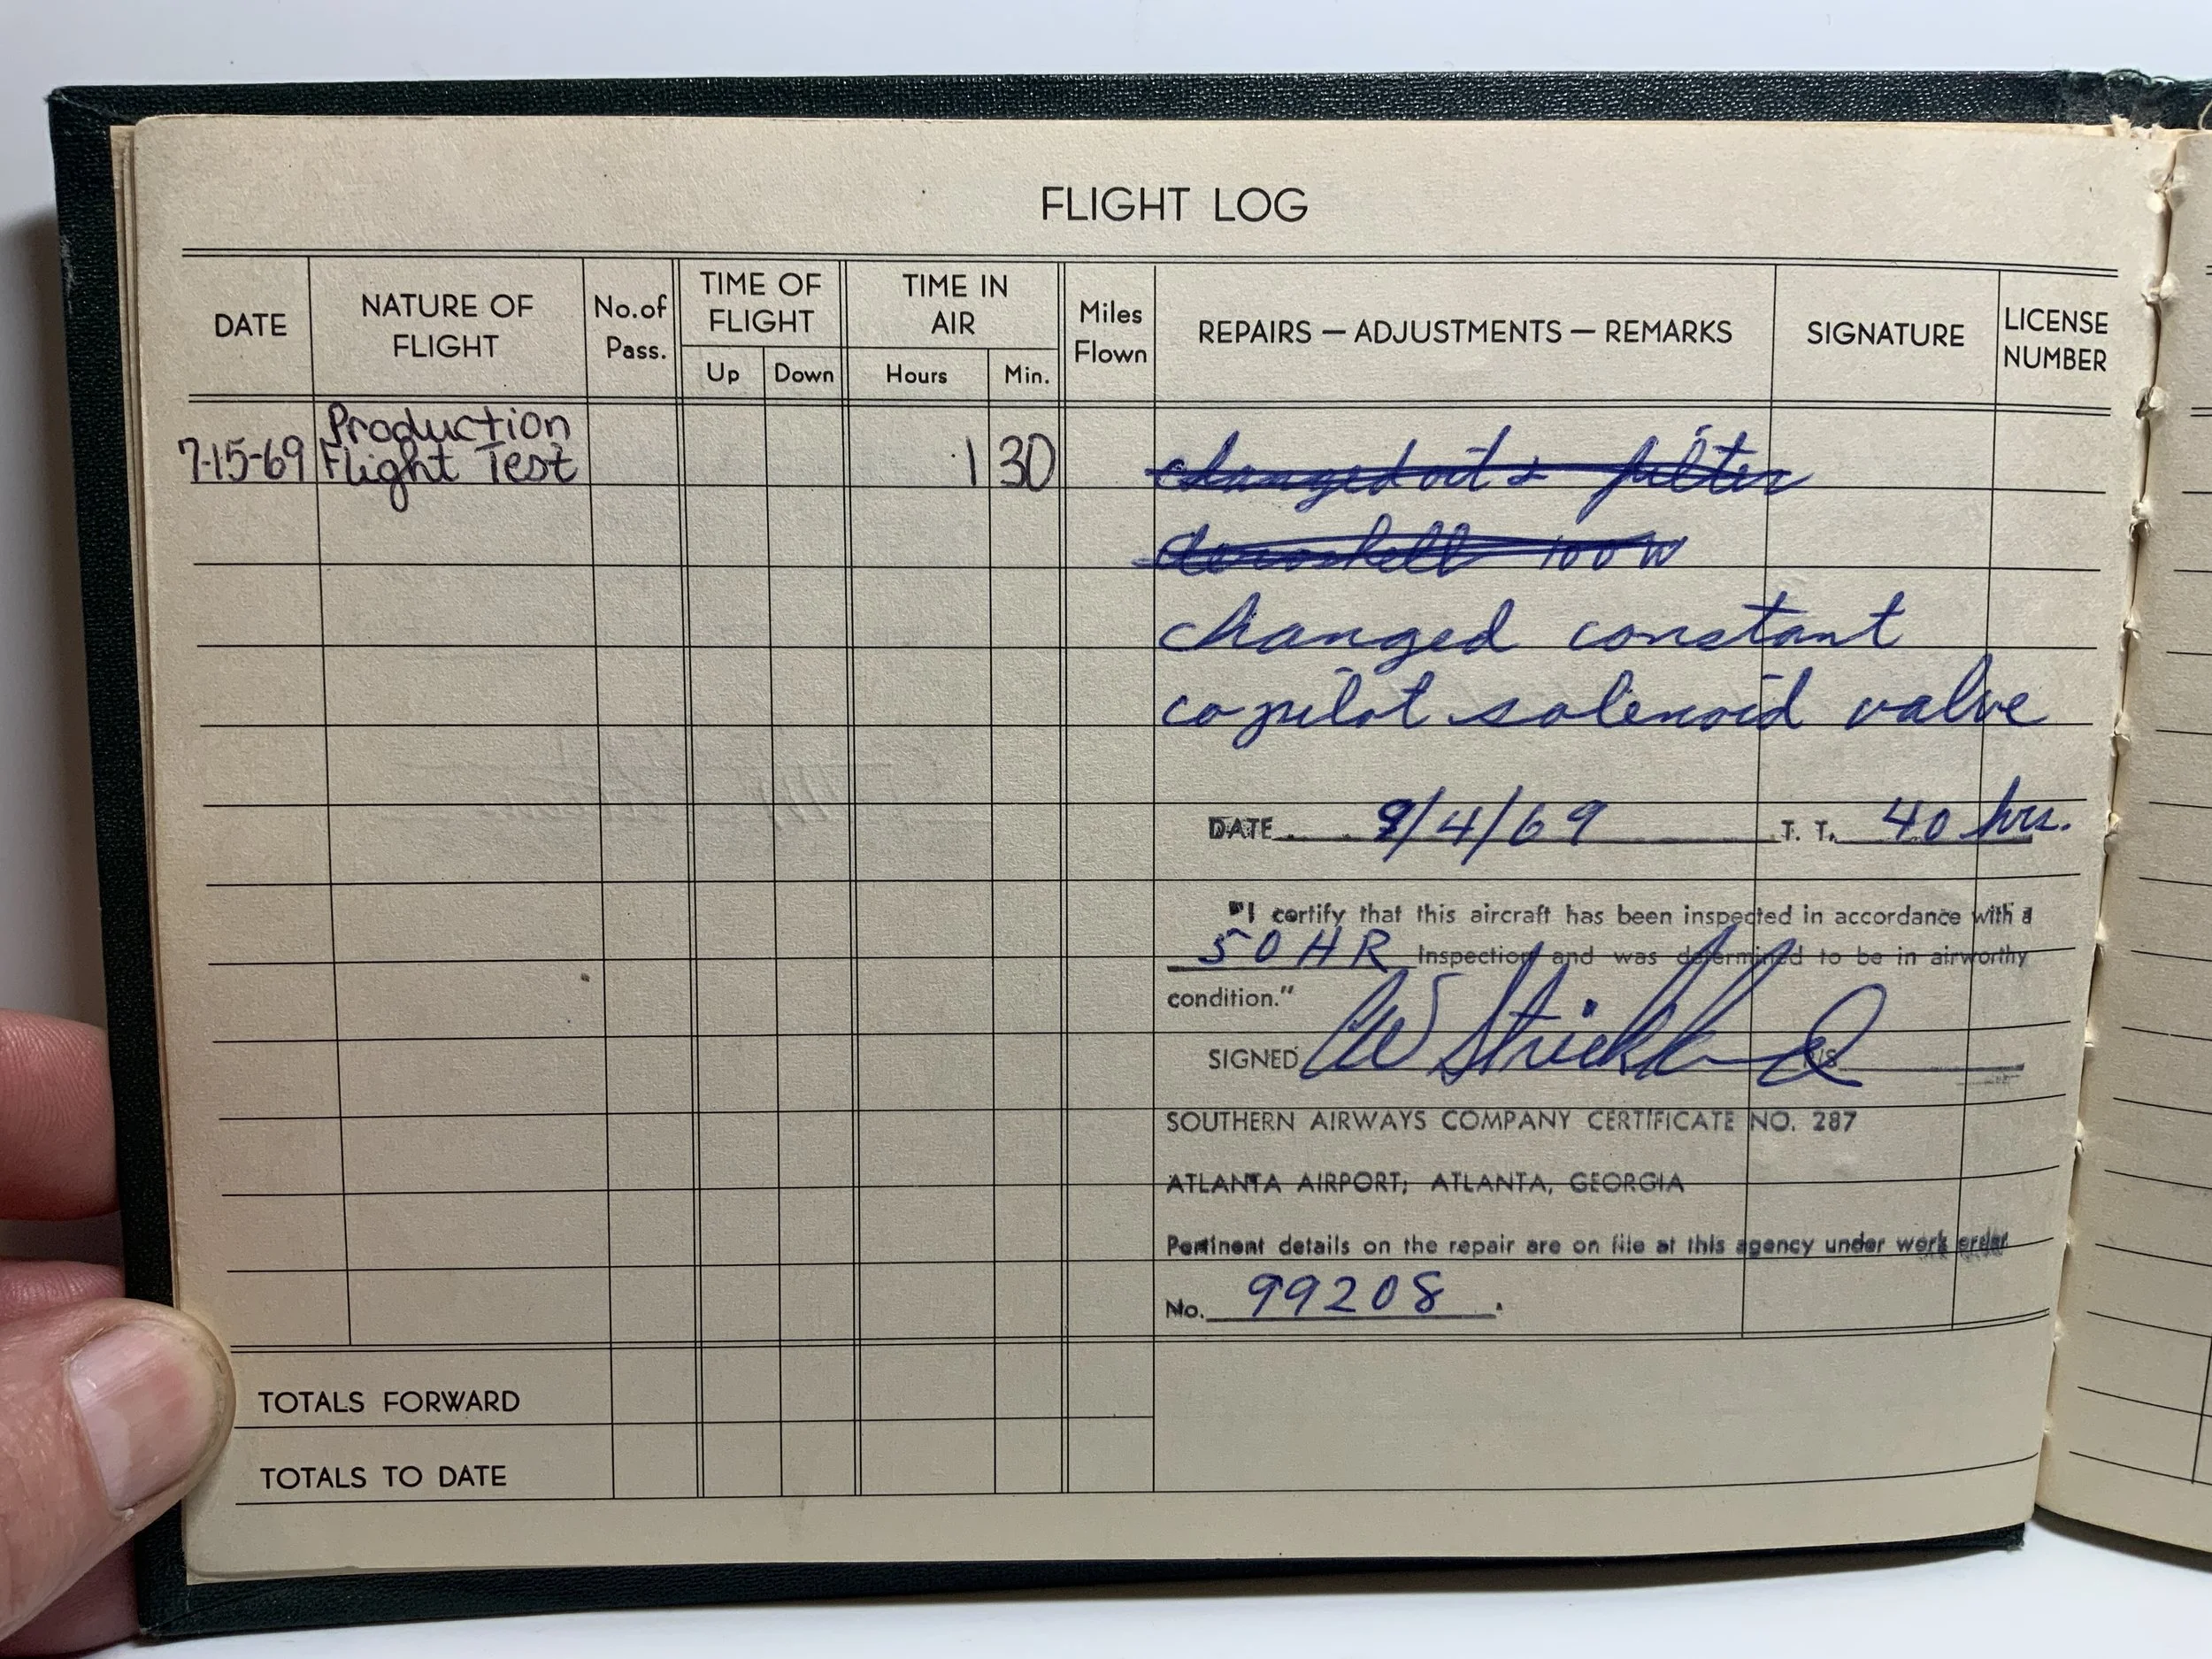 FLIGHT LOG
DATE
NATURE OF FLIGHT
No. of Pass.
TIME OF FLIGHT
Up Down
TIME IN AIR
Hours Min.
Miles Flown
REPAIRS — ADJUSTMENTS — REMARKS
SIGNATURE
LICENSE NUMBER
7-15-69 Production Flight Test 1 30
changed oil & filter
Aeroshell 100W
changed constant
copilot solenoid valve
DATE 9/4/69 T. T. 40 hrs.
"I certify that this aircraft has been inspected in accordance with a
50 HR Inspection and was determined to be in airworthy
condition."
SIGNED CW Strickland
SOUTHERN AIRWAYS COMPANY CERTIFICATE NO. 287
ATLANTA AIRPORT; ATLANTA, GEORGIA
Pertinent details on the repair are on file at this agency under work order
No. 99208.
TOTALS FORWARD
TOTALS TO DATE